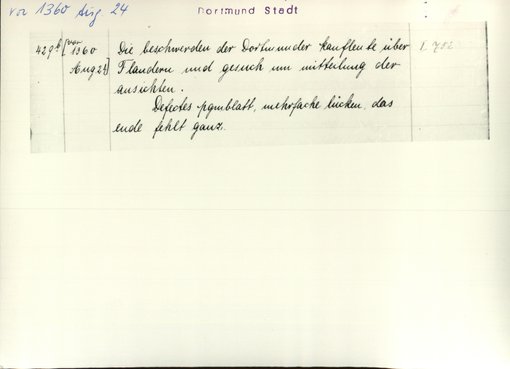 vor 1360 Aug. 24
Dortmund Stadt
429b [vor 1360 Aug 24] Die beschwerden der Dortmunder kaufleute über I. 752
Flandern und gesuch um mitteilung der
ansichten.
Defectes pgmblatt, mehrfache lücken, das
ende fehlt ganz.